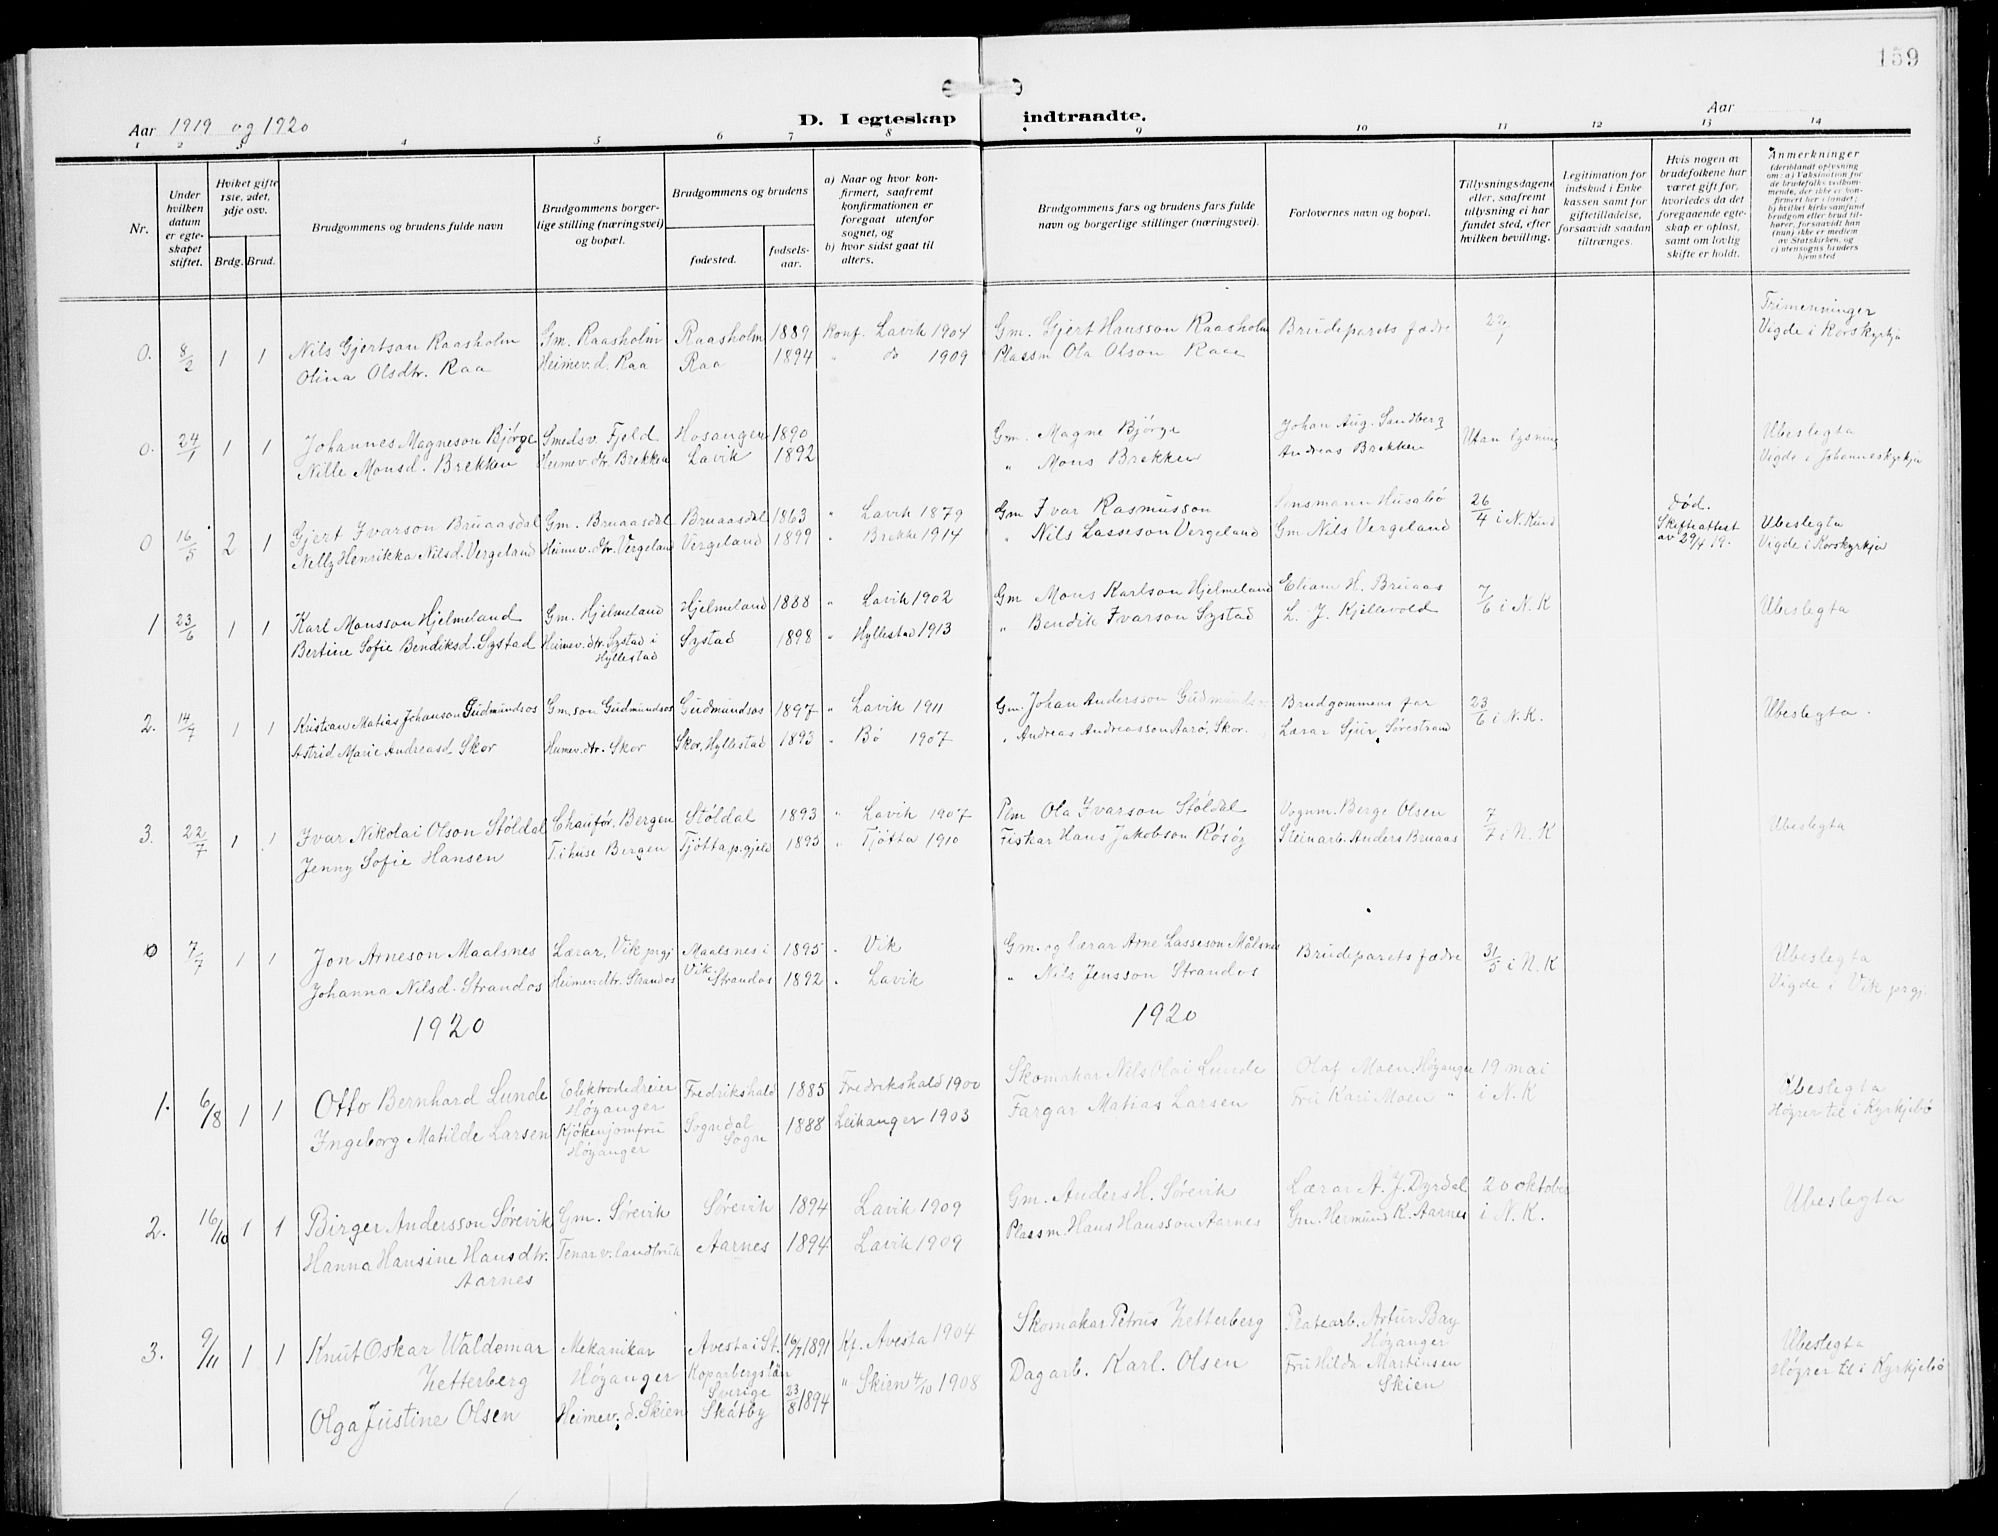 159
Aar 1919 og 1920
D. I egteskap indtraadte.
Aar
1 2 3 4 5 6 7 8 9 10 11 12 13 14
Nr.
Under hvilken datum er egteskapet stiftet.
Hviket gifte 1ste, 2det, 3dje osv.
Brdg. Brud.
Brudgommens og brudens fulde navn
Brudgommens borgerlige stilling (næringsvei) og bopæl.
Brudgommens og brudens
fødested.
fødselsaar.
a) Naar og hvor konfirmert, saafremt konfirmationen er foregaat utenfor sognet, og
b) hvor sidst gaat til alters.
Brudgommens fars og brudens fars fulde navn og borgerlige stillinger (næringsvei).
Forlovernes navn og bopæl.
Tillysningsdagene eller, saafremt tillysning ei har fundet sted, efter hvilken bevilling.
Legitimation for indskud i Enkekassen samt for giftetilladelse, forsaavidt saadan tiltrænges.
Hvis nogen av brudefolkene har været gift før, hvorledes da det foregaaende egteskap er opløst, samt om lovlig skifte er holdt.
Anmerkninger
(deriblandt oplysning om: a) Vaksination for de brudefolks vedkommende, der ikke er konfirmert her i landet; b) hvilket kirkesamfund brudgom eller brud tilhører, forsaavidt han (hun) ikke er medlem av Statskirken, og c) utensogns bruders hjemsted
0. 8/2 1 1 Nils Gjertson Raasholm Gm. Raasholm Raasholm 1889 Konf. Lavik 1904 Gm. Gjert Hansson Raasholm Brudeparets fædre 22/1 Trimenninger
Olina Olsdtr. Raa Heimev. d. Raa Raa 1894 " do 1909 Plassm Ola Olson Raa Vigde i Korskyrkja
0. 24/1 1 1 Johannes Magneson Bjørge Smedsv. Fjeld Hosanger 1890 Gm. Magne Bjørge Johan Aug. Sandberg Utan lysning Ubeslegta
Nille Monsd. Brekken Heimev. dtr. Brekken Lavik 1892 " Mons Brekken Andreas Brekken Vigde i Johanneskyrkja
0 16/5 2 1 Gjert Ivarson Bruaasdal Gm. Bruaasdal Bruaasdal 1863 " Lavik 1879 Gm Ivar Rasmusson Lensmann Husabø 26/4 i N. Kund Død. Skifteattest av 29/4 19. Ubeslegta
Nelly Henrikka Nilsd. Vergeland Heimev. dtr. Vergeland Vergeland 1899 " Brekke 1914 " Nils Lasseson Vergeland Gm Nils Vergeland Vigde i Korskyrkja
1 23/6 1 1 Karl Monsson Hjelmeland Gm. Hjelmeland Hjelmeland 1888 " Lavik 1902 Gm Mons Karlson Hjelmeland Eliam H. Bruaas 7/6 i N. K Ubeslegta
Bertine Sofie Bendiksd. Systad Heimev. dtr. Systad i Hyllestad Systad 1898 " Hyllestad 1913 " Bendik Ivarson Systad L. J. Kjellevold
2. 14/7 1 1 Kristian Matias Johanson Gudmundsos Gm. son Gudmundsos Gudmundsos 1897 " Lavik 1911 Gm. Johan Andersson Gudmundsos Brudgommens far 23/6 i N. K. Ubeslegta.
Astrid Marie Andreasd Skor Heimev. dtr. Skor Skor, Hyllestad 1893 " Bø 1907 " Andreas Andreasson Aarø, Skor. Lærar Sjur Sørestrand
3. 22/7 1 1 Ivar Nikolai Olson Støldal Chauffør, Bergen Støldal 1893 " Lavik 1907 Pm Ola Ivarson Støldal Vognm. Berge Olsen 7/7 i N. K Ubeslegta
Jenny Sofie Hansen T. i huse Bergen Tjøtta p. gjeld 1893 " Tjøtta 1910 Fiskar Hans Jakobson Røsøy Steinarb. Anders Bruaas
0 7/7 1 1 Jon Arneson Maalsnes Lærar, Vik prgj Maalsnes i Vik 1895 " Vik Gm. og lærar Arne Lasseson Målsnes Brudeparets fædre 31/5 i N. K Ubeslegta
Johanna Nilsd. Strandos Heimev. dtr. Strandos Strandos 1892 " Lavik " Nils Jensson Strandos Vigde i Vik prgj.
1920 1920
1. 6/8 1 1 Otto Bernhard Lunde Elektrodedreier Høyanger Fredrikshald 1885 Fredrikshald 1900 Skomakar Nils Olai Lunde Olaf Moen, Høyanger 19 mai i N. K Ubeslegta
Ingeborg Matilde Larsen Kjøkenjomfru Høyanger Sogndal Sogn 1888 Leikanger 1903 Fargar Matias Larsen Fru Kari Moen " Høyrer til i Kyrkjebø
2. 16/10 1 1 Birger Andersson Sørevik Gm. Sørevik Sørevik 1894 Lavik 1909 Gm. Anders H. Sørevik Lærar A. J. Dyrdal 20 oktober i N. K. Ubeslegta
Hanna Hansine Hansdtr. Aarnes Tenar v. landbruk Aarnes 1894 Lavik 1909 Plassm. Hans Hansson Aarnes Gm. Hermund K. Aarnes
3. 9/11 1 1 Knut Oskar Waldemar Zetterberg Mekanikar Høyanger Avesta i St. Koparbergslän Sverige 16/7 1891 Kf. Avesta 1904 Skomakar Petrus Zetterberg Platearb. Artur Bay Høyanger Ubeslegta
Olga Justine Olsen Heimev. d. Skien Skåtby 23/8 1894 " Skien 4/10 1908 Dagarb. Karl. Olsen Fru Hilda Martinsen Skien Høyrer til i Kyrkjebø